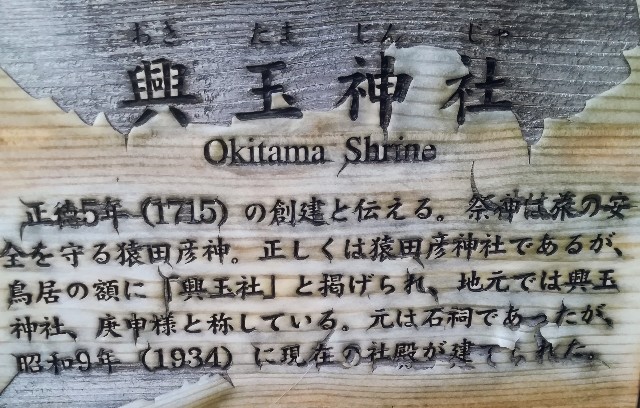 おき たま じん じゃ
興玉神社
Okitama Shrine
正徳5年（1715）の創建と伝える。祭神は旅の安
全を守る猿田彦神。正しくは猿田彦神社であるが、
鳥居の額に「興玉社」と掲げられ、地元では興玉
神社、庚申様と称している。元は石祠であったが、
昭和9年（1934）に現在の社殿が建てられた。